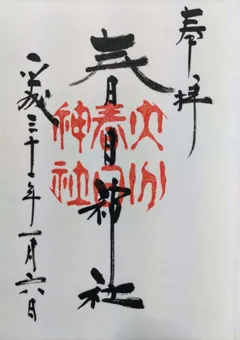 奉拝
春日神社
大分
春日
神社
平成三十一年一月六日